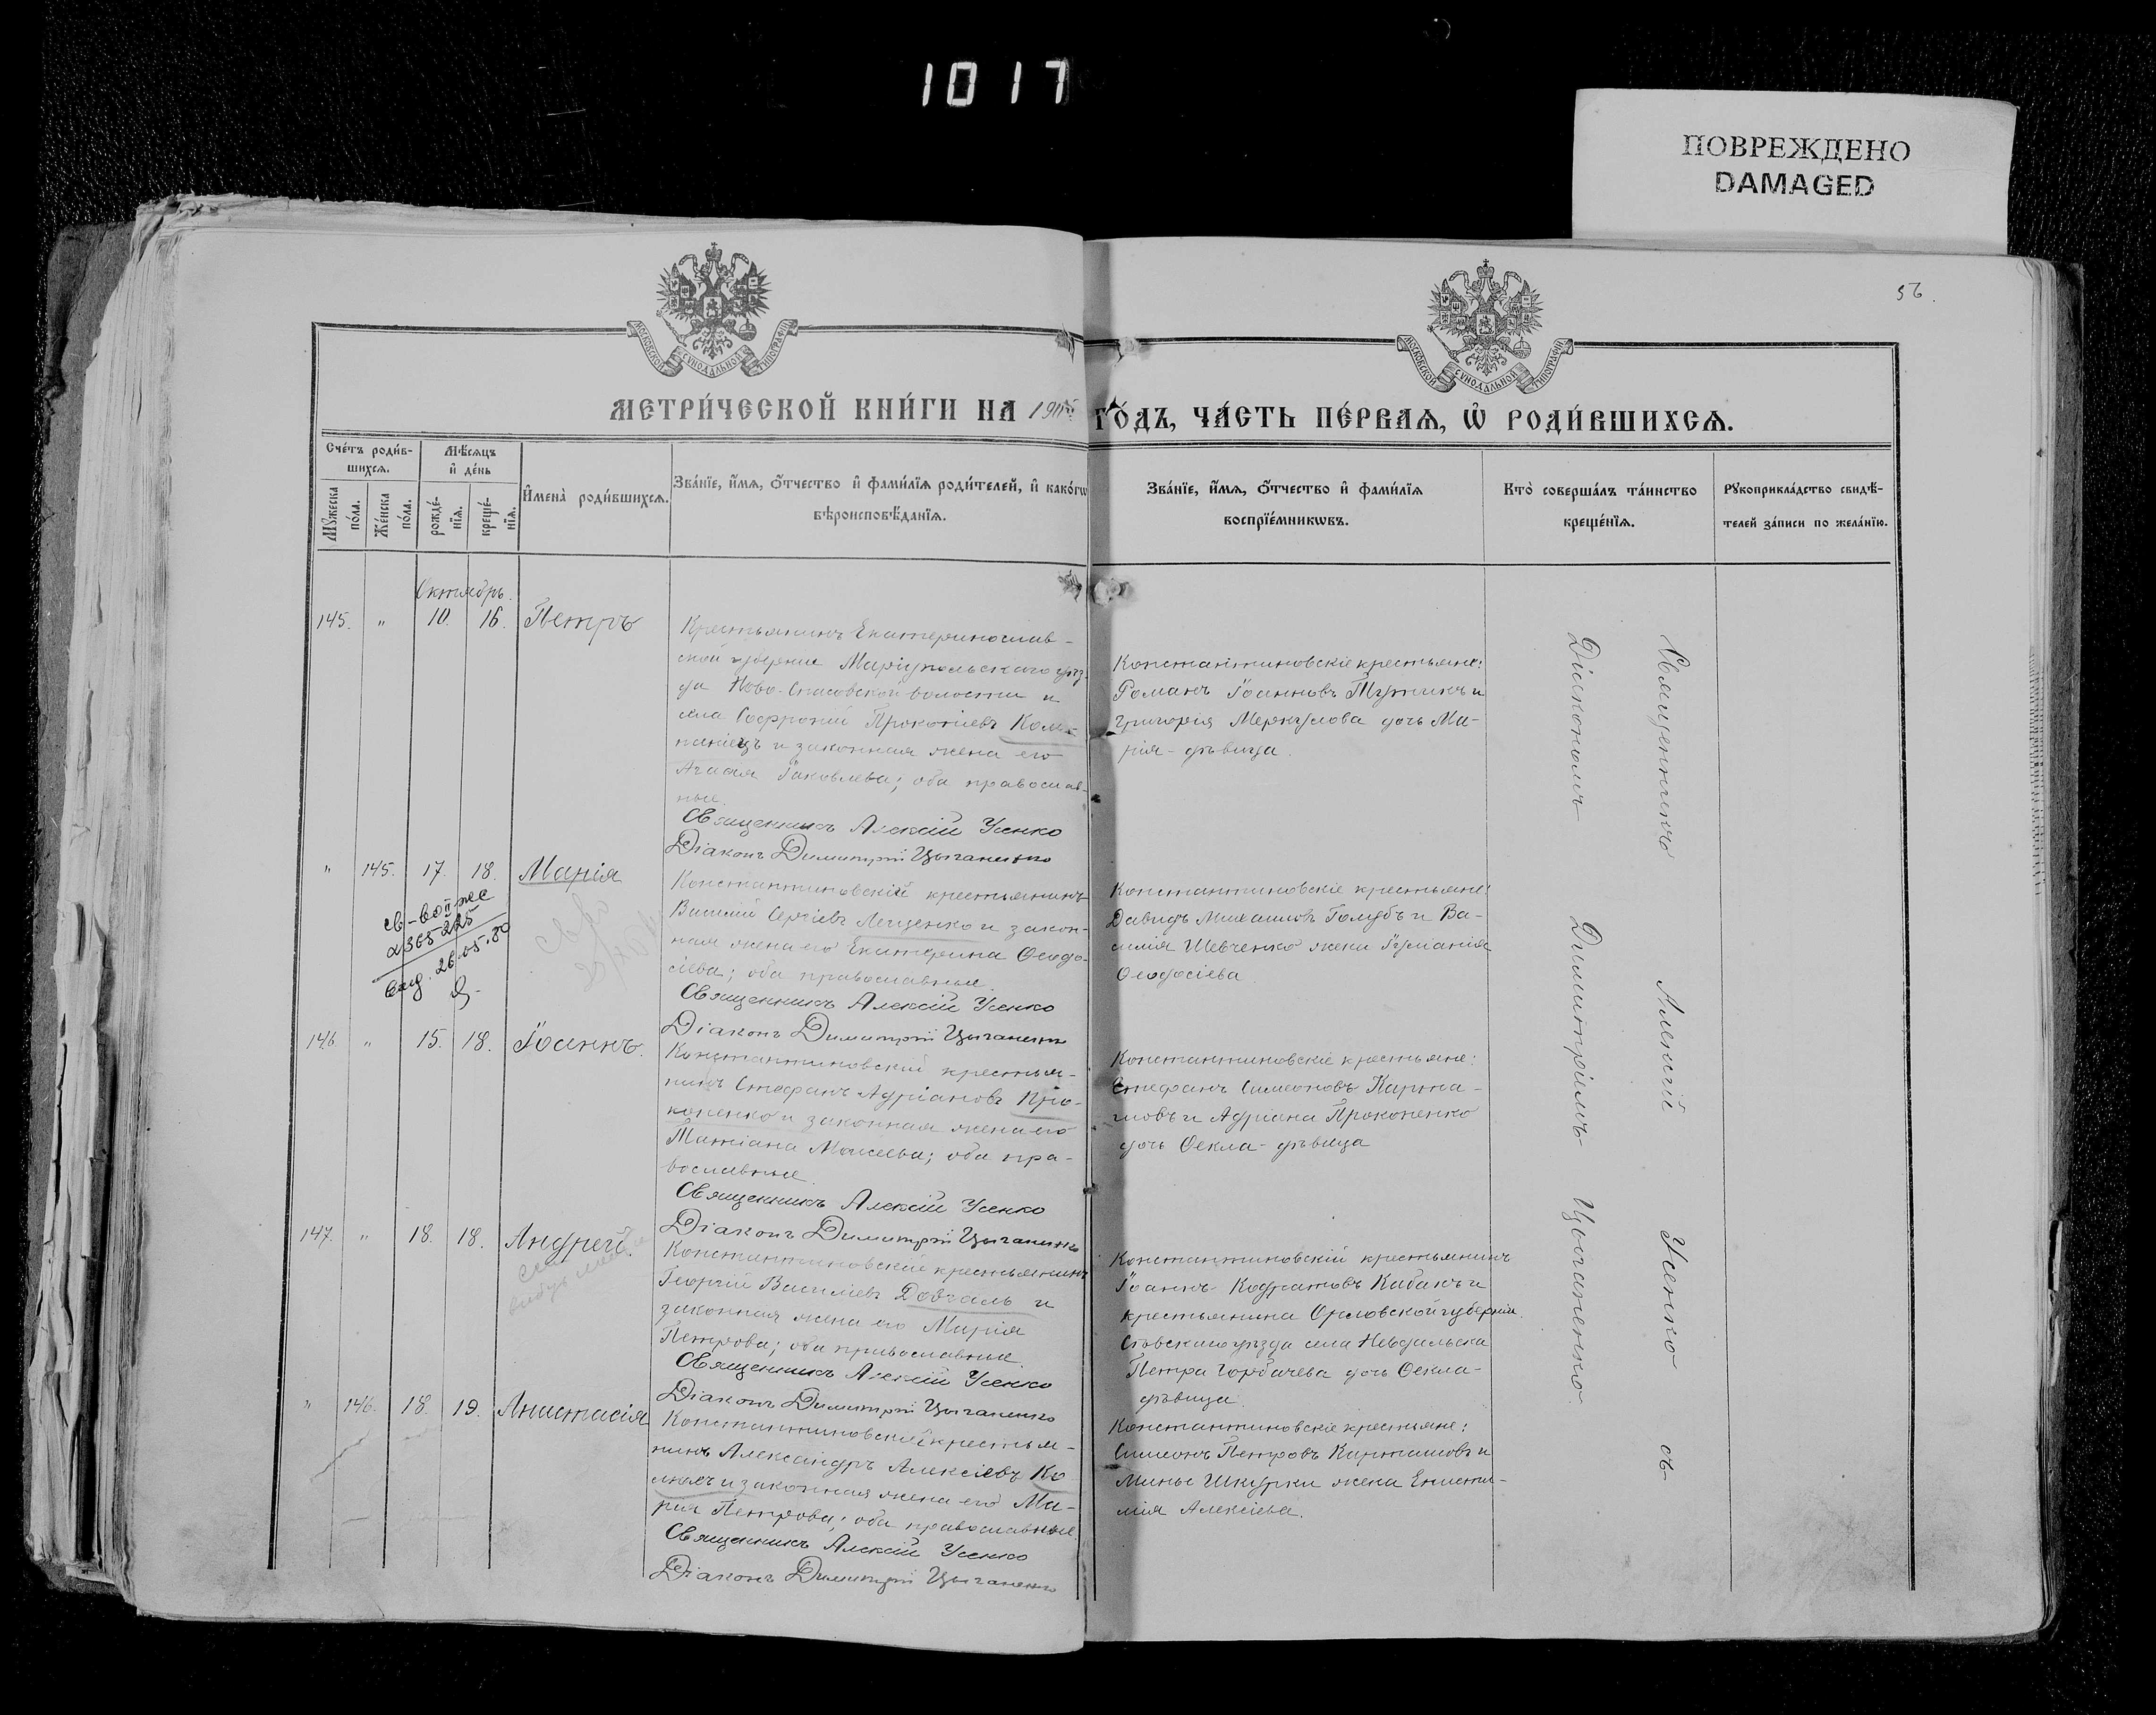 1017
ПОВРЕЖДЕНО
DAMAGED
56.
МОСКОВСКОЙ СУНОДАЛЬНОЙ ТИПОГРАФІИ
МОСКОВСКОЙ СУНОДАЛЬНОЙ ТИПОГРАФІИ
МЕТРИ́ЧЕСКОЙ КНИ́ГИ НА
ГО́ДЪ, ЧА́СТЬ ПЕ́РВАЯ, Ѡ҆ РОДИ́ВШИХСЯ.
Сче́тъ роди́в-
шихся.
Мѣ́сяцъ
и҆ де́нь
Му́жеска по́ла.
Же́нска по́ла.
рожде́-
нїя.
креще́-
нїя.
И҆мена̀ роди́вшихся.
Зва́нїе, и҆́мя, ѻ҆́тчество и҆ фами́лїя роди́телей, и҆ како́гѡ
вѣроисповѣ́данїя.
Зва́нїе, и҆́мя, ѻ҆́тчество и҆ фами́лїя
воспрїе́мникѡвъ.
Кто̀ соверша́лъ та́инство
креще́нїя.
Рукоприкла́дство свидѣ́-
телей за́писи по жела́нїю.
Октябрь.
145. " 10. 16. Петръ
Крестьянинъ Екатеринослав-
ской губернiи Марiупольскаго уѣз-
да Ново-Спасовской волости и
села Софронiй Прокопiевъ Ком-
панiецъ и законная жена его
Агафiя Iаковлева; оба православ-
ные.
Священникъ Алексiй Усенко
Дiаконъ Димитрiй Цыганенко
Константиновскiе крестьяне:
Романъ Iоанновъ и
Григорiя Меркулова дочь Ма-
рiя-дѣвица.
" 145. 17. 18. Марiя
св-во
365225
выд. 26.05.80
св-во
Константиновскiй крестьянинъ
Василiй Сергiевъ Лещенко и закон-
ная жена его Екатерина Ѳеодо-
сiева; оба православные.
Священникъ Алексiй Усенко
Дiаконъ Димитрiй Цыганенко
Константиновскiе крестьяне:
Давидъ Михаиловъ Голубъ и Ва-
силiя Шевченко жена
Ѳеодосiева.
146. " 15. 18. Iоаннъ.
Константиновскiй крестья-
нинъ Стефанъ Адрiановъ Про-
копенко и законная жена его
Татiана Моисеева; оба пра-
вославные.
Священникъ Алексiй Усенко
Дiаконъ Димитрiй Цыганенко
Константиновскiе крестьяне:
Стефанъ Симеоновъ Карта-
шовъ и Адрiана Прокопенко
дочь Ѳекла-дѣвица
147. " 18. 18. Андрей.
Константиновскiй крестьянинъ
Георгiй Василiевъ Довгаль и
законная жена его Марiя
Петрова; оба православные.
Священникъ Алексiй Усенко
Дiаконъ Димитрiй Цыганенко
Константиновскiй крестьянинъ
Iоаннъ Кодратовъ Кабакъ и
крестьянина Орловской губернiи
уѣзда села
Петра Горбачева дочь Ѳекла-
дѣвица.
" 146. 18. 19. Анастасiя
Константиновскiй крестья-
нинъ Александръ Алексiевъ
и законная жена его Ма-
рiя Петрова; оба православные.
Священникъ Алексiй Усенко
Дiаконъ Димитрiй Цыганенко
Константиновскiе крестьяне:
Симеонъ Петровъ Карташовъ и
Мины Шкурки жена
Алексiева.
Священникъ Алексiй Усенко съ
Дiакономъ Димитрiемъ Цыганенко